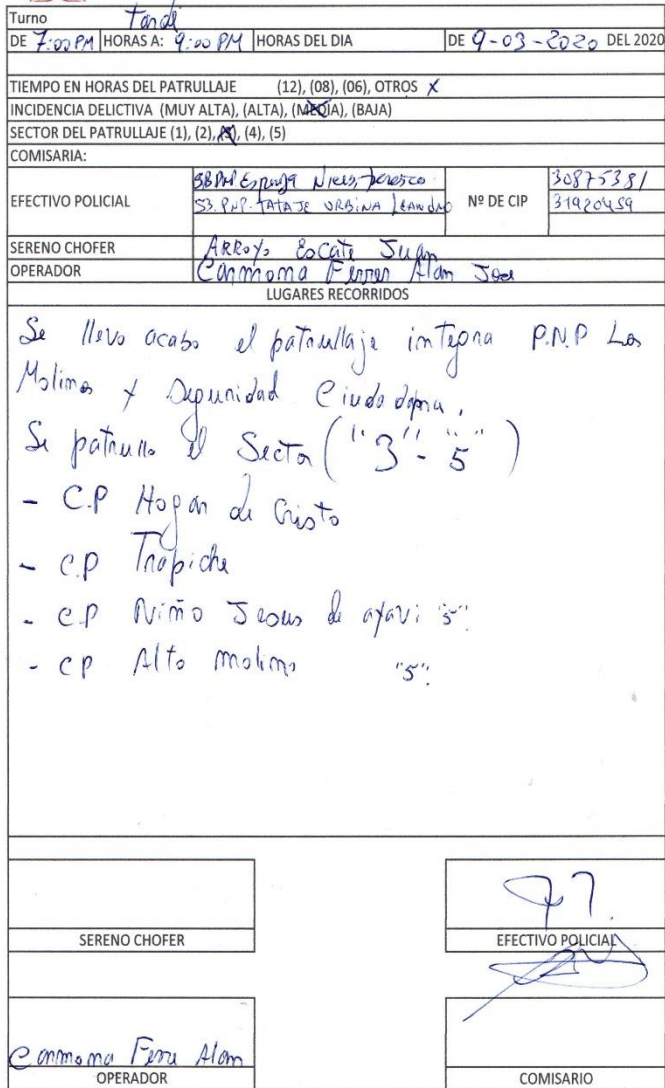 Turno Tarde
DE 7:00 PM HORAS A: 9:00 PM HORAS DEL DIA DE 9-03-2020 DEL 2020
TIEMPO EN HORAS DEL PATRULLAJE (12), (08), (06), OTROS X
INCIDENCIA DELICTIVA (MUY ALTA), (ALTA), (MEDIA), (BAJA)
SECTOR DEL PATRULLAJE (1), (2), (3), (4), (5)
COMISARIA:
EFECTIVO POLICIAL
Nº DE CIP
30875381
S3. PNP. TATAJE URBINA LEANDRO
31920459
SERENO CHOFER Arroyo Escate Juan
OPERADOR Carmona Ferrer Alan Jose
LUGARES RECORRIDOS
Se llevo acabo el patrullaje integra P.N.P Los
Molinos y Seguridad Ciudadana,
Se patrullo el Sector ("3"-"5")
- C.P Hogar de Cristo
- C.P Trapiche
- C.P Niño Jesus de ayavi "5"
- CP Alto molino "5"
SERENO CHOFER
EFECTIVO POLICIAL
Carmona Alan
OPERADOR
COMISARIO